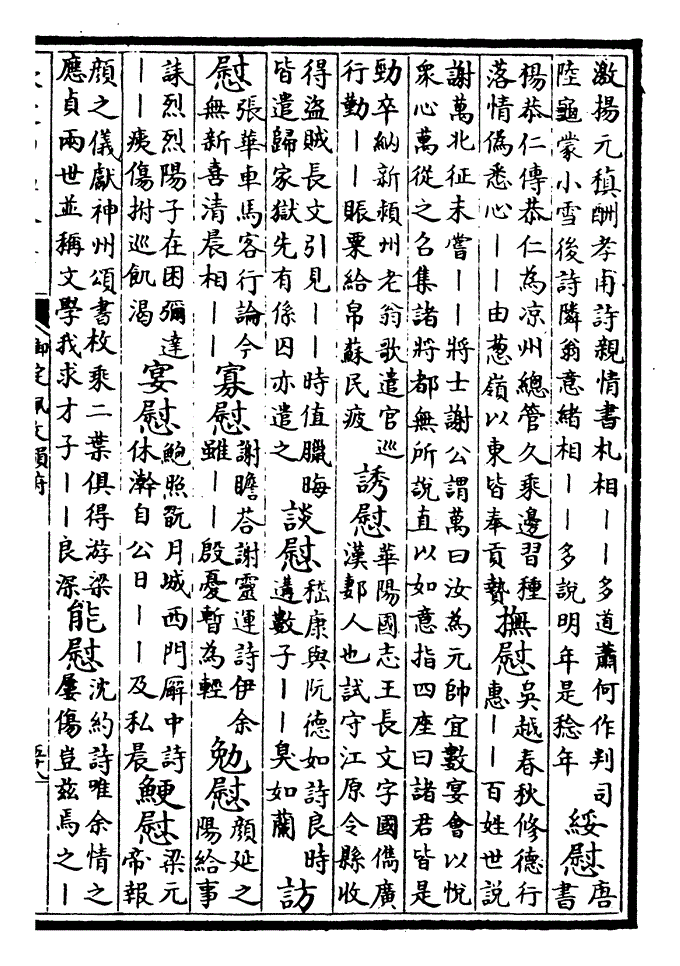 激揚元稹酬孝甫詩親情書札相丨丨多道蕭何作判司
陸龜蒙小雪後詩隣翁意緒相丨丨多說明年是稔年
綏慰
唐
書
楊恭仁傳恭仁為凉州總管久乘邊習種
落情偽悉心丨丨由葱嶺以東皆奉貢贄
撫慰
吳越春秋修德行
惠丨丨百姓世說
謝萬北征未嘗丨丨將士謝公謂萬曰汝為元帥宜數宴會以悅
衆心萬從之召集諸將都無所說直以如意指四座曰諸君皆是
勁卒納新潁州老翁歌遣官巡
行勤丨丨賬粟給帛蘇民疲
誘慰
華陽國志王長文字國儁廣
漢郪人也試守江原令縣收
得盜賊長文引見丨丨時值臘晦
皆遣歸家獄先有係囚亦遣之
談慰
嵇康與阮德如詩良時
遘數子丨丨臭如蘭
訪
慰
張華車馬客行論今
無新喜清晨相丨丨
寡慰
謝瞻荅謝靈運詩伊余
雖丨丨殷憂暫為輕
勉慰
顏延之
陽給事
誄烈烈陽子在困彌達
丨丨痍傷拊巡飢渴
宴慰
鮑照翫月城西門廨中詩
休澣自公日丨丨及私晨
鯁慰
梁元
帝報
顏之儀獻神州頌書枚乘二葉俱得游梁
應貞兩世並稱文學我求才子丨丨良深
能慰
沈約詩唯余情之
屢傷豈茲焉之丨
御定佩文韻府